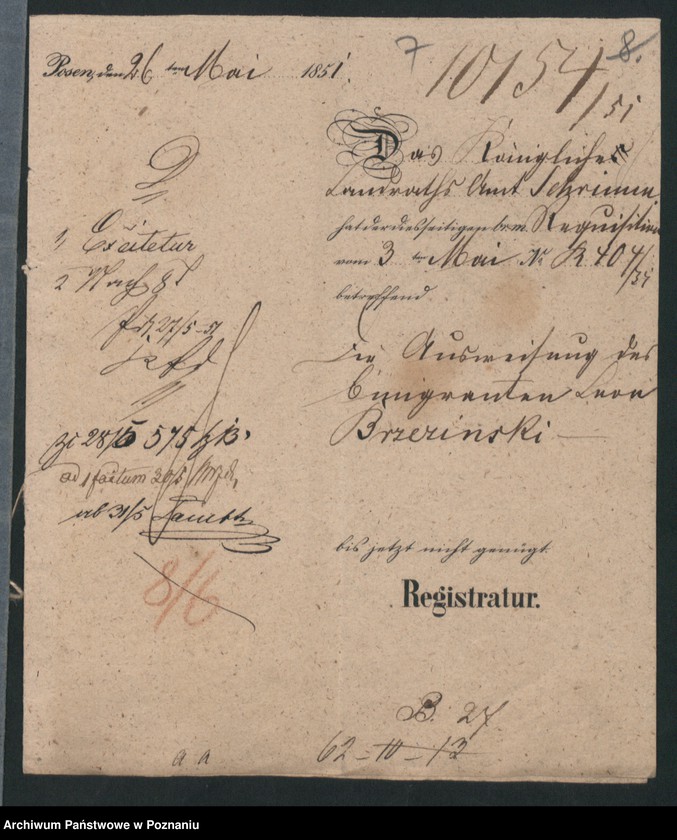 7
8.
Posen, den 26 ten Mai 1851.
10154/51
Das Königliche
Landraths Amt Schrimm
hat der diesseitigen br.m. Requisition
vom 3 ten Mai No. R 404/51
betreffend
die Ausweisung des
Emigranten Leon
Brzezinski —
bis jetzt nicht genügt.
Registratur.
1, Excitetur
2 Nach 8 T
27/5 51
28/5 575
ad 1 factum 30/5
ab 31/5
8/6
B. 27
62-10-13
a a
Archiwum Państwowe w Poznaniu